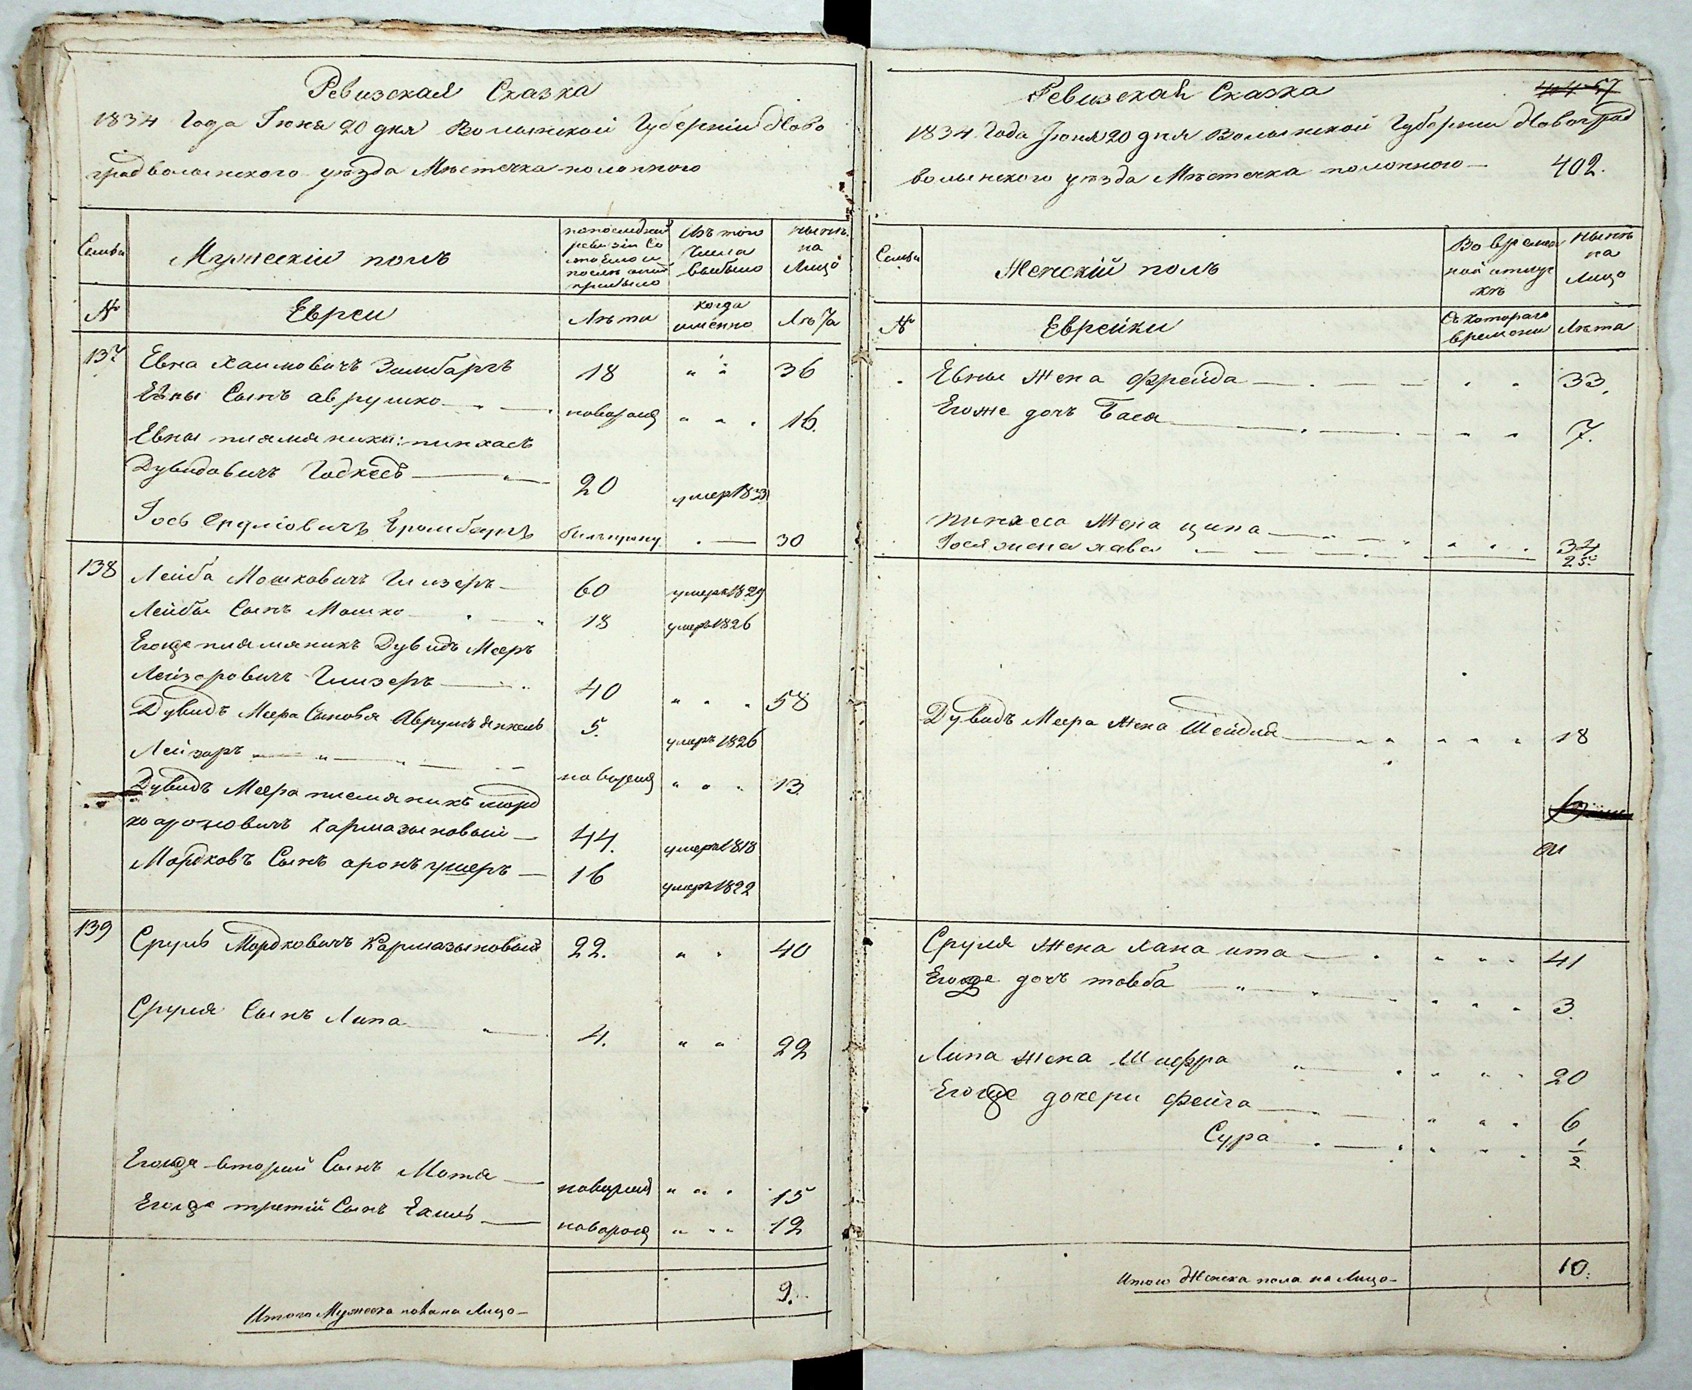 Ревизская Сказка
1834 Года Июня 20 дня Волынской Губернии Ново
градволынского уезда Местечка полонного
Семьи
Мужеский полъ
по последней ревизiи состояло и после оной прибыло
Изъ того числа выбыло
ныне на Лицо
№
Евреи
Лета
когда именно
Лета
137
Евна Хаимовичъ Зимбаргъ
18
36
Евны Сынъ аврумко
новорож
16.
Евны племяники: пинхасъ
Дувидовичъ
20
умер 1833
Iось Сруліовичъ
30
138
Лейба Мошковичъ Глизеръ
60
умеръ 1829
Лейбы Сынъ Мошко
18
умеръ 1826
Егоже племяникъ Дувидъ Мееръ
Лейзеровичъ Глизеръ
40
58
Дувидъ Меера Сыновья Аврумъ Янкель
5.
умеръ 1826
Лейзоръ
новорож
13
Дувидъ Меера племяникъ морд
ко ароновичъ Кармазыновый
44.
умеръ 1818
Мордковъ Сынъ аронъ ушеръ
16
умеръ 1822
139
Сруль Мордковичъ Кармазыновый
22.
40
Сруля Сынъ Липа
4.
22
Егоже второй Сынъ Мотя
новорож
15
Егоже третiй Сынъ Хаимъ
новорож
12
Итого Мужеска пола на Лицо
9.
Ревизская Сказка
57
1834 Года Июня 20 дня Волынской Губернии Новоград
волынского уезда Местечка полонного
402.
Семьи
Женскiй полъ
Во временной отлучке
ныне на Лицо
№
Еврейки
Съ котораго времени
Лета
Евны жена Фрейда
33.
Егоже дочь Бася
7.
пинхеса Жена ципа
34
Iося жена хава
25.
Дувидъ Меера Жена Шейдля
18
Сруля Жена хана ита
41
Егоже дочь товба
3.
Липа жена Шифра
20
Егоже дочери Фейга
6
Сура
1/2
Итого Женска пола на Лицо
10.